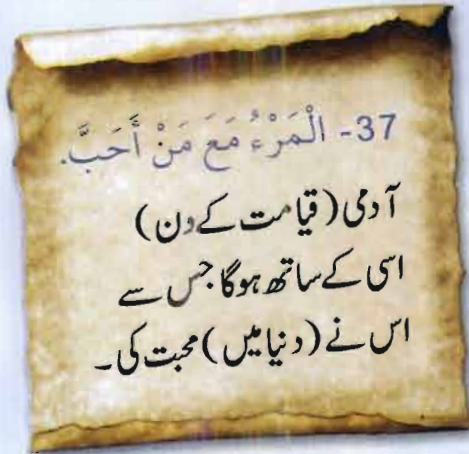 37- الْمَرْءُ مَعَ مَنْ أَحَبَّ.
آدمی (قیامت کے دن)
اسی کے ساتھ ہوگا جس سے
اس نے (دنیا میں) محبت کی۔